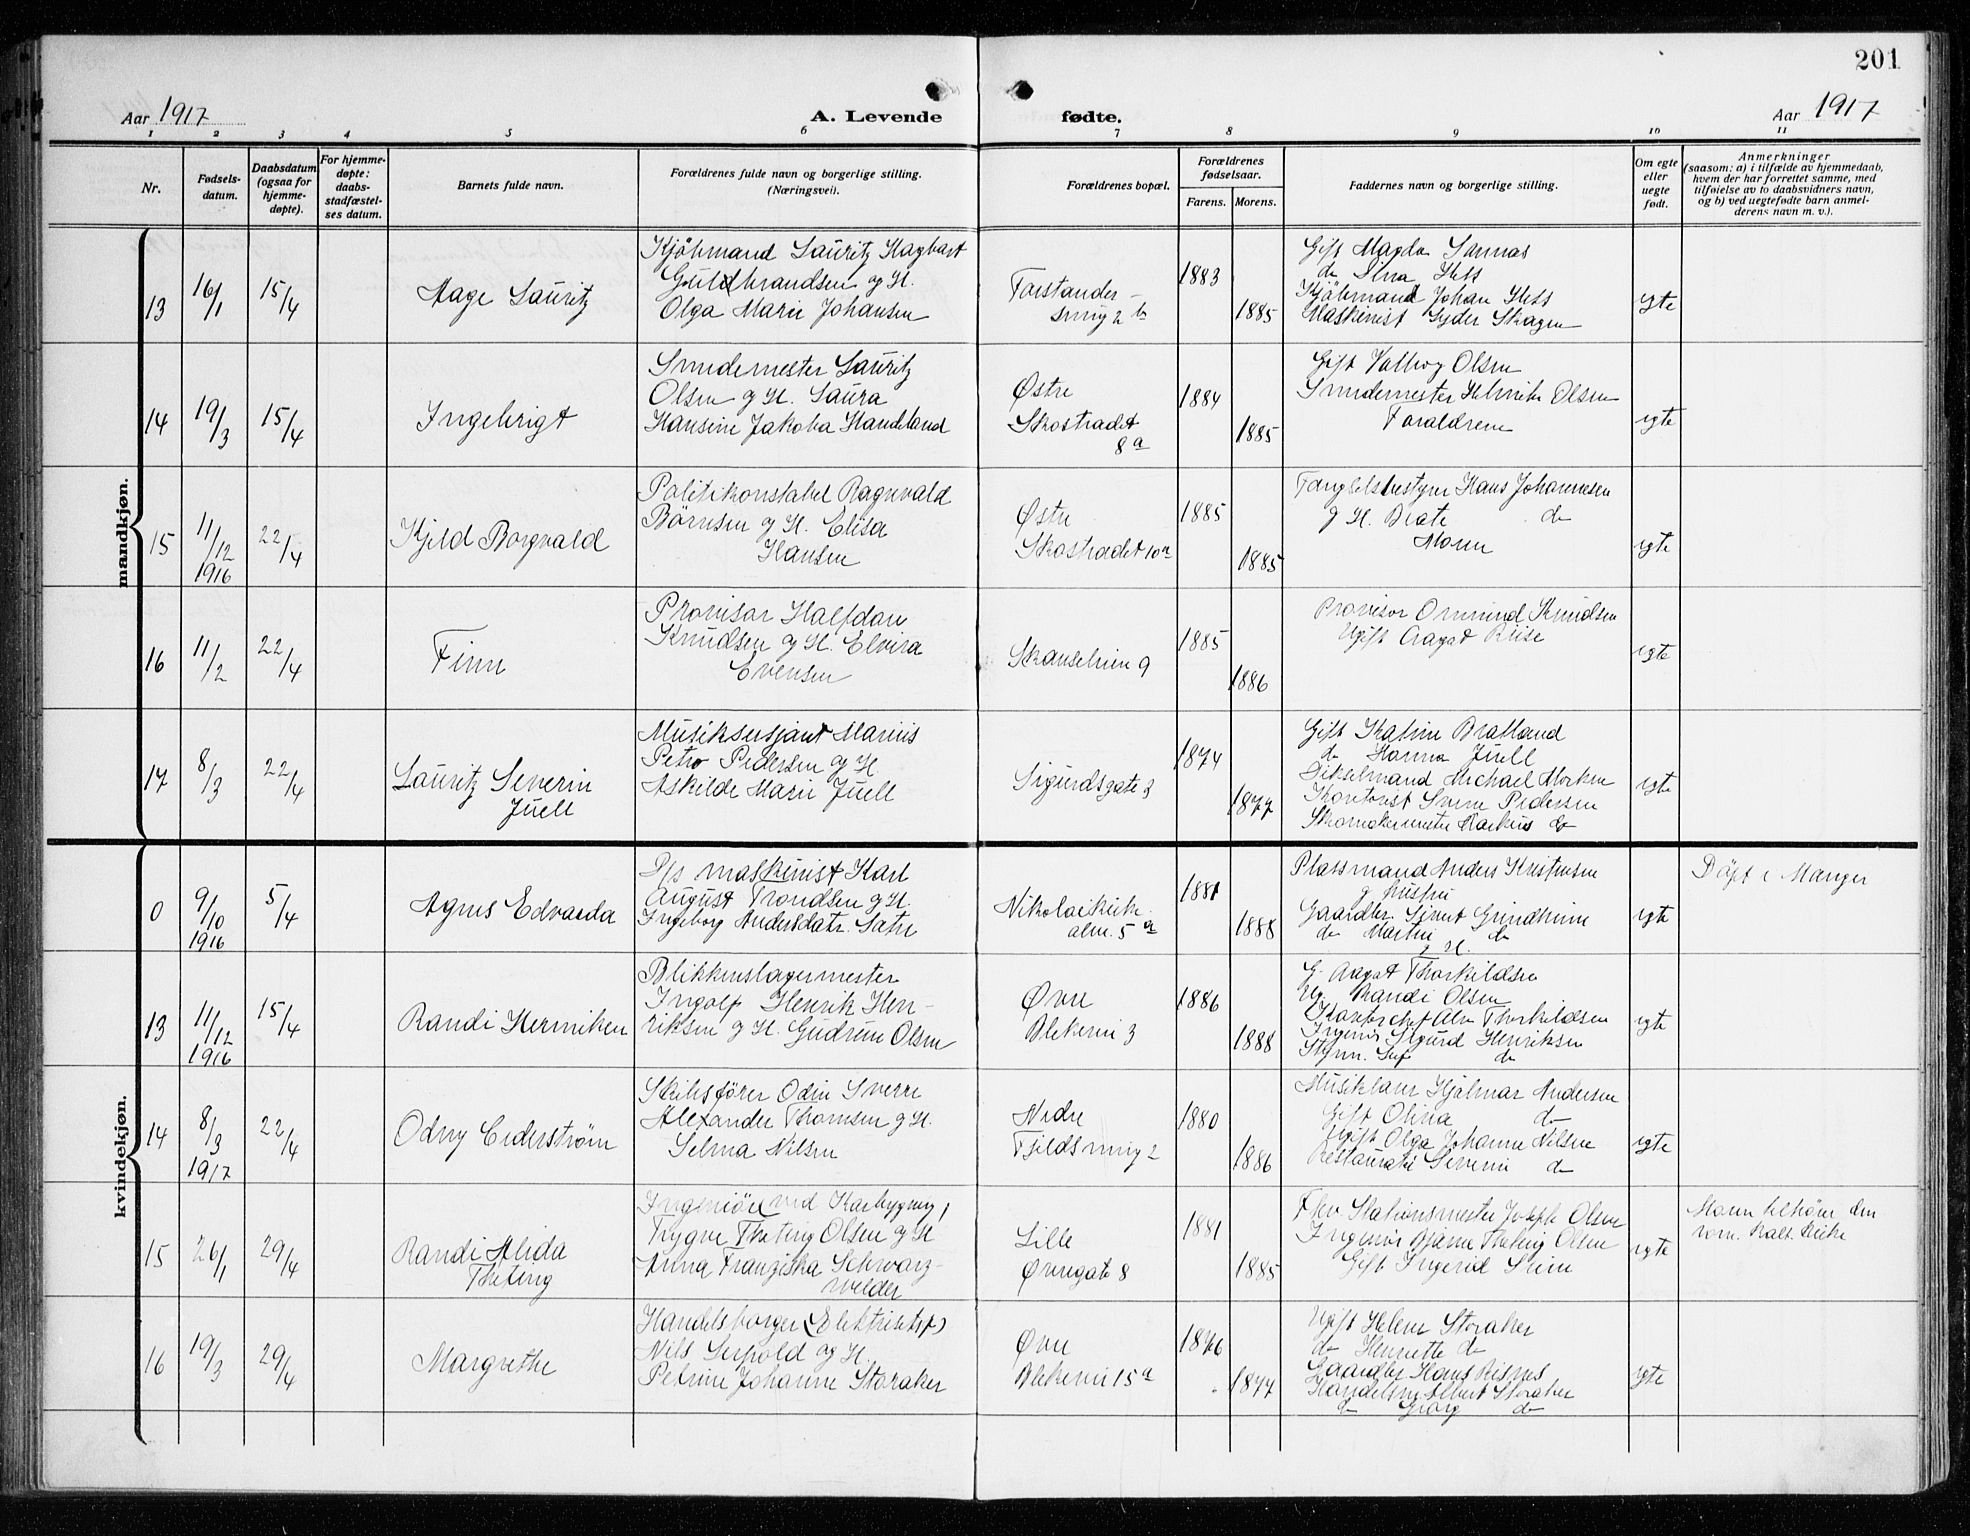 201
Aar 1917
A. Levende fødte.
Aar 1917
1 2 3 4 5 6 7 8 9 10 11
Nr.
Fødsels-
datum.
Daabsdatum
(ogsaa for
hjemme-
døpte).
For hjemme-
døpte:
daabs-
stadfæstel-
ses datum.
Barnets fulde navn.
Forældrenes fulde navn og borgerlige stilling.
(Næringsvei).
Forældrenes bopæl.
Forældrenes
fødselsaar.
Farens. Morens.
Faddernes navn og borgerlige stilling.
Om egte
eller
uegte
født.
Anmerkninger
(saasom: a) i tilfælde av hjemmedaab,
hvem der har forrettet samme, med
tilføielse av to daabsvidners navn,
og b) ved uegtefødte barn anmel-
derens navn m. v.).
mandkjøn.
13
16/1
15/4
Aage Lauritz
Kjøbmand Lauritz Hagbart
Guldbrandsen og H.
Olga Marie Johansen
Forstander-
smug 2 b
1883
1885
Gift Magda
do Hess
Kjøbmand Johan Hess
Maskinist Skagen
egte
14
19/3
15/4
Ingebrigt
Smedemester Lauritz
Olsen og H. Laura
Hansine Jakoba Handeland
Østre
Skostrædet
8 a
1884
1885
Gift Valborg Olsen
Smedemester Olsen
Forældrene
egte
15
11/12
1916
22/4
Kjeld Borgvald
Politikonstabel Ragnvald
Børnsen og H. Elisa
Hansen
Østre
Skostrædet 10 a
1885
1885
Fængselsbestyrer Hans Johannesen
og H. Beate do
Moren
egte
16
11/2
22/4
Finn
Provisor Halfdan
Knudsen og H. Elvira
Evensen
Skansehien 9
1885
1886
Provisor Ommund Knudsen
Ugift Aagot Riise
egte
17
8/3
22/4
Lauritz Severin
Juell
Musiksersjant Marius
Petro Pedersen og H
Askilde Marie Juell
Sigurdsgate 3
1874
1877
Gift Katrine Bratland
do Hanna Juell
Michael Morken
Kontorist Pedersen
Skomakermester Markus do
egte
kvindekjøn.
0
9/10
1916
5/4
Agnes Edvarda
D/s maskinist Karl
August Trondsen og H.
Ingeborg Andersdatr. Sætre
Nikolaikirke
alm. 5 a
1881
1888
Plassmand Anders Kristensen
og hustru
Gaardbr. Sivert Grindheim
do Martin do
og H.
egte
Døpt i Manger
13
11/12
1916
15/4
Randi Henriken
Blikkenslagermester
Ingolf Henrik Hen-
riksen og H. Gudrun Olsen
Øvre
Blekevei 3
1886
1888
G. Aagot Thorkildsen
Ug. Randi Olsen
Alv Thorkildsen
Ingeniør Sigurd Henriksen
Styrm. do
egte
14
8/3
1917
22/4
Odny Cederstrøm
Skibsfører Odin Sverre
Alexander Thomsen og H.
Selma Nilsen
Nedre
Fjeldsmug 2
1880
1886
Musiklærer Hjalmar Andersen
Gift Olina do
Ugift Olga Johanne Nilsen
Severin do
egte
15
26/1
29/4
Randi Alida
Theting
Ingeniør (ved Havbygning)
Trygve Theting Olsen og H
Anna Franziska Schwarz-
welder
Lille
Øvregate 8
1881
1885
Fhv Stationsmester Joseph Olsen
Ingeniør Bjarne Theting Olsen
Gift Ingerid
egte
Moren tilhører den
rom. kath. kirke
16
19/3
29/4
Margrethe
Handelsborger (Elektriker)
Nils og H.
Petrine Johanne Storaker
Øvre
Blekevei 15 a
1876
1877
Ugift Helene Storaker
do Henriette do
Gaardbr Hans
Albert Storaker
do Georg do
egte